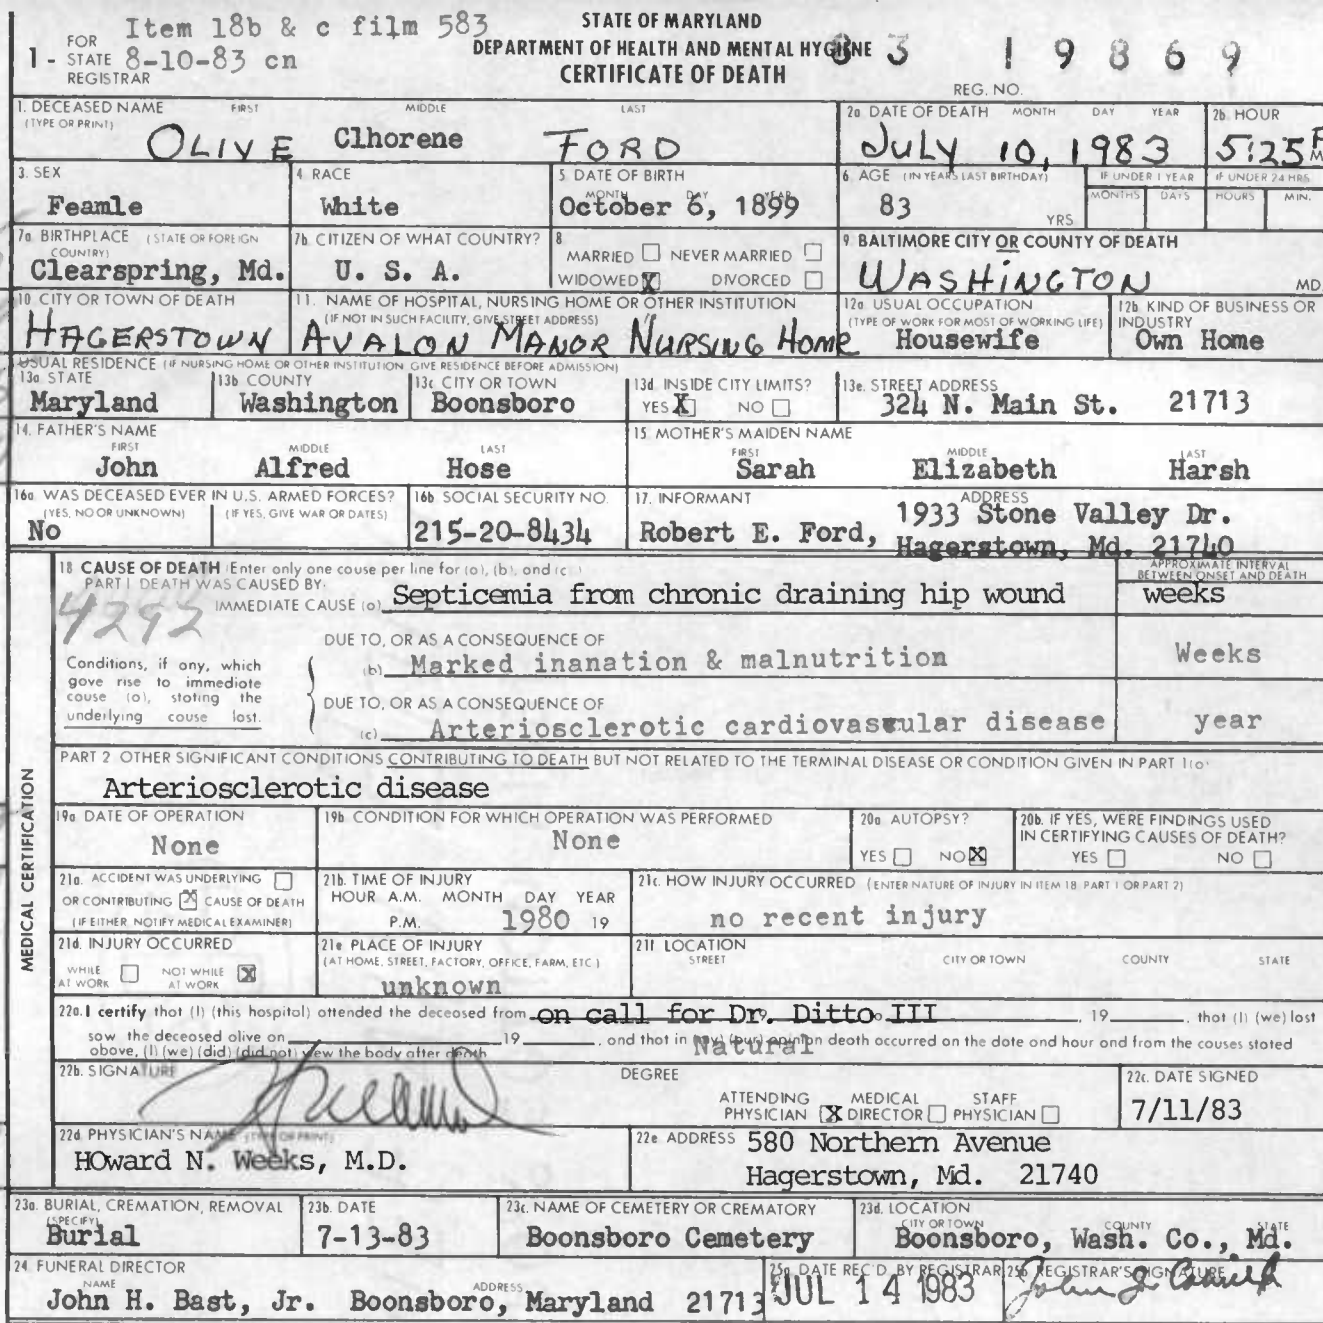 Item 18b & c film 583
STATE OF MARYLAND
FOR
1 - STATE 8-10-83 cn
REGISTRAR
DEPARTMENT OF HEALTH AND MENTAL HYGIENE
CERTIFICATE OF DEATH
83 19869
REG. NO.
1. DECEASED NAME FIRST MIDDLE LAST
(TYPE OR PRINT)
OLIVE Clhorene FORD
2a. DATE OF DEATH MONTH DAY YEAR
July 10, 1983
2b. HOUR
5:25 P M
3. SEX
Feamle
4. RACE
White
5. DATE OF BIRTH
MONTH DAY YEAR
October 6, 1899
6. AGE (IN YEARS LAST BIRTHDAY)
83 YRS
IF UNDER 1 YEAR
MONTHS DAYS
IF UNDER 24 HRS
HOURS MIN.
7a. BIRTHPLACE (STATE OR FOREIGN
COUNTRY)
Clearspring, Md.
7b. CITIZEN OF WHAT COUNTRY?
U. S. A.
8
MARRIED NEVER MARRIED
WIDOWED X DIVORCED
9. BALTIMORE CITY OR COUNTY OF DEATH
WASHINGTON MD
10 CITY OR TOWN OF DEATH
HAGERSTOWN
11. NAME OF HOSPITAL, NURSING HOME OR OTHER INSTITUTION
(IF NOT IN SUCH FACILITY, GIVE STREET ADDRESS)
AVALON MANOR NURSING Home
12a. USUAL OCCUPATION
(TYPE OF WORK FOR MOST OF WORKING LIFE)
Housewife
12b. KIND OF BUSINESS OR
INDUSTRY
Own Home
USUAL RESIDENCE (IF NURSING HOME OR OTHER INSTITUTION GIVE RESIDENCE BEFORE ADMISSION)
13a. STATE
Maryland
13b COUNTY
Washington
13c CITY OR TOWN
Boonsboro
13d. INSIDE CITY LIMITS?
YES X NO
13e. STREET ADDRESS
324 N. Main St. 21713
14. FATHER'S NAME
FIRST MIDDLE LAST
John Alfred Hose
15. MOTHER'S MAIDEN NAME
FIRST MIDDLE LAST
Sarah Elizabeth Harsh
16a WAS DECEASED EVER IN U.S. ARMED FORCES?
(YES, NO OR UNKNOWN) (IF YES, GIVE WAR OR DATES)
No
16b SOCIAL SECURITY NO.
215-20-8434
17. INFORMANT ADDRESS
Robert E. Ford, 1933 Stone Valley Dr.
Hagerstown, Md. 21740
18 CAUSE OF DEATH (Enter only one cause per line for (a), (b), and (c))
PART I DEATH WAS CAUSED BY:
4292
IMMEDIATE CAUSE (a) Septicemia from chronic draining hip wound
APPROXIMATE INTERVAL
BETWEEN ONSET AND DEATH
weeks
Conditions, if any, which
gave rise to immediate
cause (a), stating the
underlying cause last.
DUE TO, OR AS A CONSEQUENCE OF
(b) Marked inanation & malnutrition Weeks
DUE TO, OR AS A CONSEQUENCE OF
(c) Arteriosclerotic cardiovascular disease year
PART 2 OTHER SIGNIFICANT CONDITIONS CONTRIBUTING TO DEATH BUT NOT RELATED TO THE TERMINAL DISEASE OR CONDITION GIVEN IN PART 1(a)
Arteriosclerotic disease
MEDICAL CERTIFICATION
19a DATE OF OPERATION
None
19b CONDITION FOR WHICH OPERATION WAS PERFORMED
None
20a AUTOPSY?
YES NO X
20b. IF YES, WERE FINDINGS USED
IN CERTIFYING CAUSES OF DEATH?
YES NO
21a. ACCIDENT WAS UNDERLYING
OR CONTRIBUTING X CAUSE OF DEATH
(IF EITHER, NOTIFY MEDICAL EXAMINER)
21b. TIME OF INJURY
HOUR A.M. MONTH DAY YEAR
P.M. 1980 19
21c. HOW INJURY OCCURRED (ENTER NATURE OF INJURY IN ITEM 18, PART 1 OR PART 2)
no recent injury
21d. INJURY OCCURRED
WHILE AT WORK NOT WHILE AT WORK X
21e PLACE OF INJURY
(AT HOME, STREET, FACTORY, OFFICE, FARM, ETC.)
unknown
21f LOCATION
STREET CITY OR TOWN COUNTY STATE
22a. I certify that (I) (this hospital) attended the deceased from on call for Dr. Ditto III, 19, that (I) (we) lost
saw the deceased alive on 19, and that in (my) (our) opinion death occurred on the date and hour and from the causes stated
above, (I) (we) (did) (did not) view the body after death
Natural
22b. SIGNATURE
DEGREE
ATTENDING PHYSICIAN X MEDICAL DIRECTOR STAFF PHYSICIAN
22c. DATE SIGNED
7/11/83
22d PHYSICIAN'S NAME (TYPE OR PRINT)
HOward N. Weeks, M.D.
22e ADDRESS 580 Northern Avenue
Hagerstown, Md. 21740
23a. BURIAL, CREMATION, REMOVAL
(SPECIFY)
Burial
23b. DATE
7-13-83
23c. NAME OF CEMETERY OR CREMATORY
Boonsboro Cemetery
23d. LOCATION
CITY OR TOWN COUNTY STATE
Boonsboro, Wash. Co., Md.
24. FUNERAL DIRECTOR
NAME ADDRESS
John H. Bast, Jr. Boonsboro, Maryland 21713
25a. DATE REC'D. BY REGISTRAR
JUL 14 1983
25b. REGISTRAR'S SIGNATURE